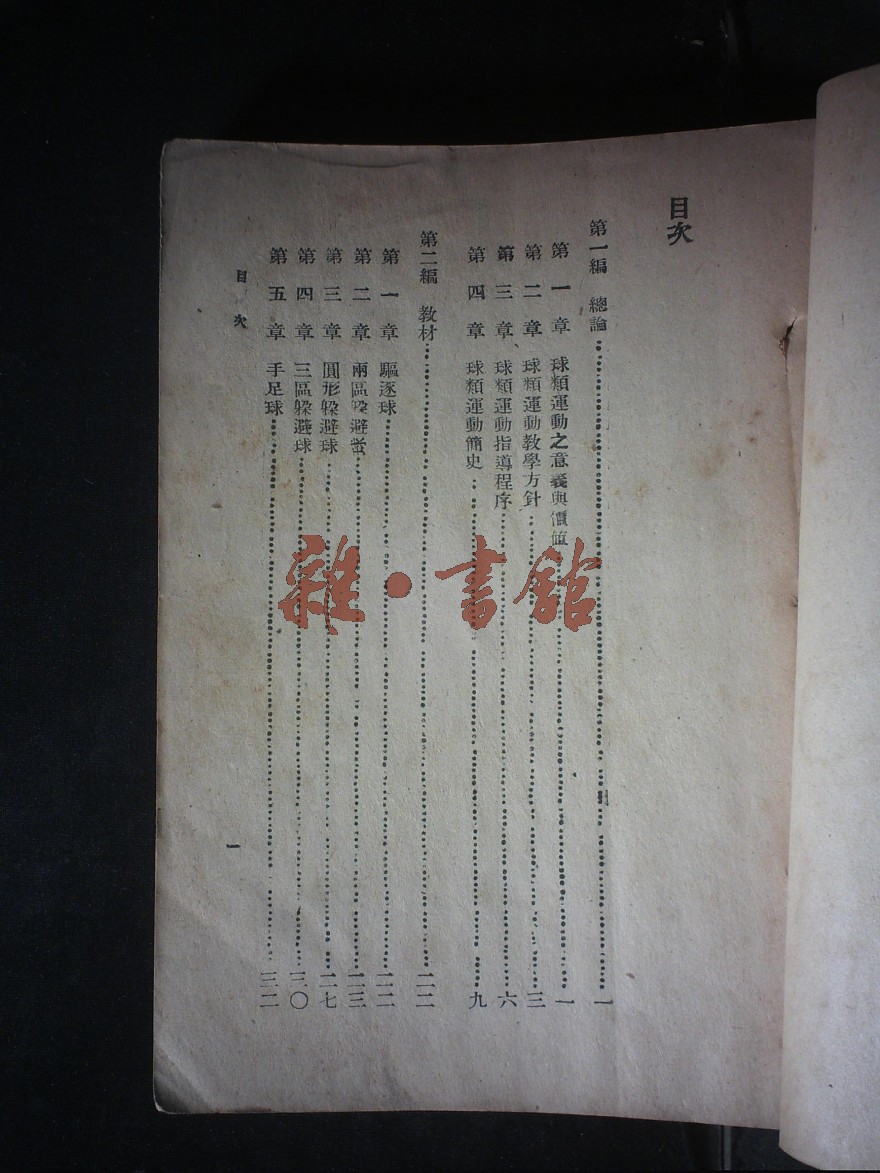 目次
第一編 總論……一
第一章 球類運動之意義與價值……一
第二章 球類運動教學方針……三
第三章 球類運動指導程序……六
第四章 球類運動簡史……九
第二編 教材……二二
第一章 驅逐球……二二
第二章 兩區躲避……二三
第三章 圓形躲避球……二七
第四章 三區躲避球……三〇
第五章 手足球……三二
目次
一
雜·書館